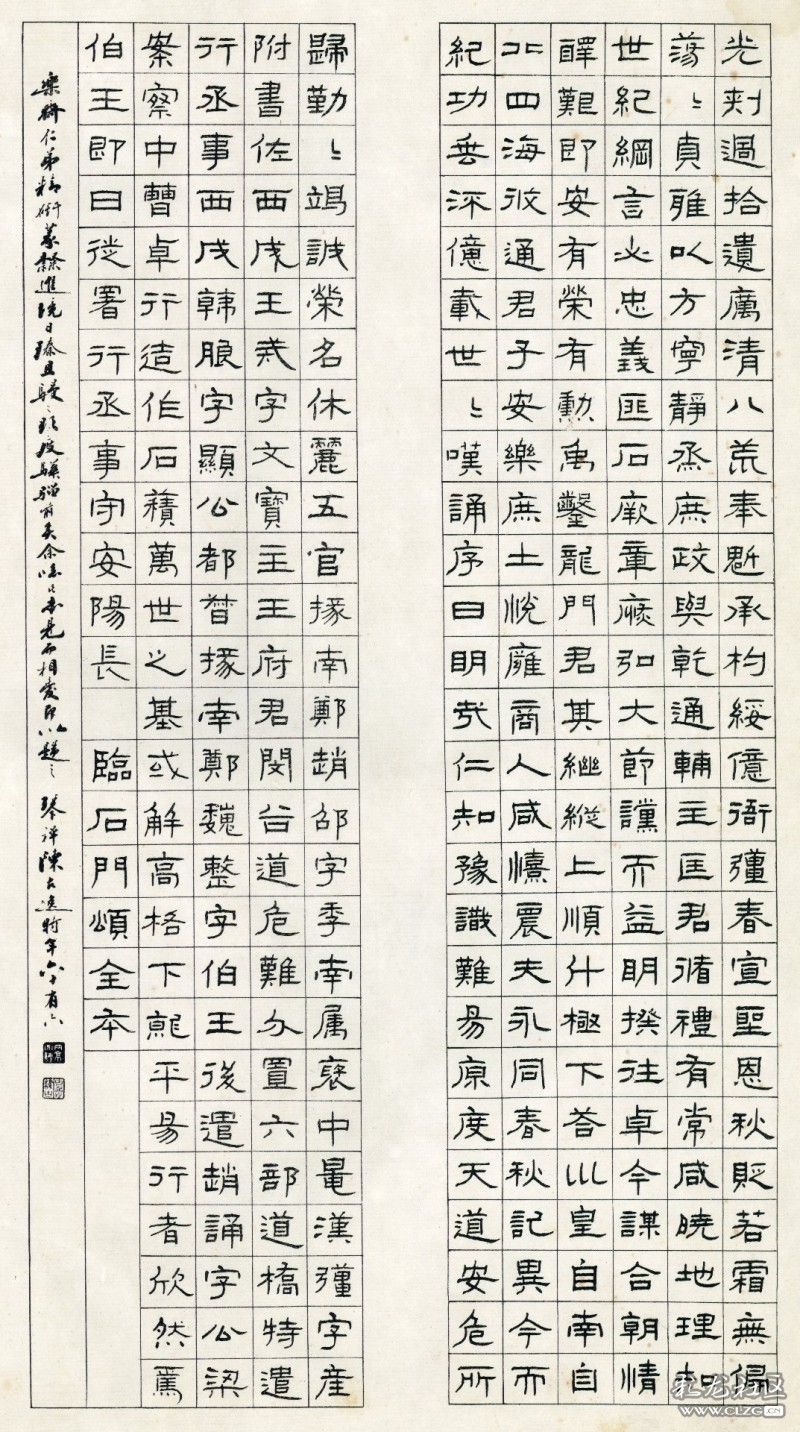 光剌過拾遺厲清八荒奉魁承杓綏億衙彊春宣聖恩秋貶若霜無偏
蕩〻貞雅以方寧靜烝庶政與乾通輔主匡君循禮有常咸曉地理知
世紀綱言必忠義匪石厥章恢弘大節讜而益明揆往卓今謀合朝情
醳艱即安有榮有勳禹鑿龍門君其繼縱上順斗極下荅巛皇自南自
北四海攸通君子安樂庶士悅雍商人咸憘農夫永同春秋記異今而
紀功垂流億載世〻嘆誦序曰明哉仁知豫識難易原度天道安危所
歸勤〻竭誠榮名休麗五官掾南鄭趙邵字季南属褒中鼂漢彊字產
附書佐西成王戒字文寶主王府君閔谷道危難分置六部道橋特遣
行丞事西成韓朖字顯公都督掾南鄭魏整字伯王後遣趙誦字公梁
案察中曹卓行造作石積萬世之基或解高格下就平易行者欣然焉
伯王即日徙署行丞事守安陽長 臨石門頌全本
仁弟精研篆隸進境日臻且駸〻 陳 時年六十有六